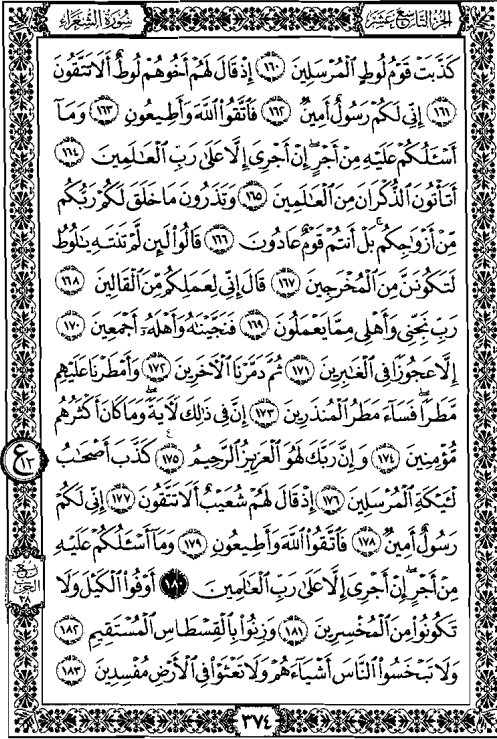 سُورَةُ الشُّعَرَاءِ
الجُزْءُ التَّاسِعَ عَشَرَ
كَذَّبَتْ قَوْمُ لُوطٍ ٱلْمُرْسَلِينَ ١٦٠ إِذْ قَالَ لَهُمْ أَخُوهُمْ لُوطٌ أَلَا تَتَّقُونَ
١٦١ إِنِّي لَكُمْ رَسُولٌ أَمِينٌ ١٦٢ فَٱتَّقُوا۟ ٱللَّهَ وَأَطِيعُونِ ١٦٣ وَمَآ
أَسْـَٔلُكُمْ عَلَيْهِ مِنْ أَجْرٍ ۖ إِنْ أَجْرِىَ إِلَّا عَلَىٰ رَبِّ ٱلْعَـٰلَمِينَ ١٦٤
أَتَأْتُونَ ٱلذُّكْرَانَ مِنَ ٱلْعَـٰلَمِينَ ١٦٥ وَتَذَرُونَ مَا خَلَقَ لَكُمْ رَبُّكُم
مِّنْ أَزْوَٰجِكُم ۚ بَلْ أَنتُمْ قَوْمٌ عَادُونَ ١٦٦ قَالُوا۟ لَئِن لَّمْ تَنتَهِ يَـٰلُوطُ
لَتَكُونَنَّ مِنَ ٱلْمُخْرَجِينَ ١٦٧ قَالَ إِنِّى لِعَمَلِكُم مِّنَ ٱلْقَالِينَ ١٦٨
رَبِّ نَجِّنِى وَأَهْلِى مِمَّا يَعْمَلُونَ ١٦٩ فَنَجَّيْنَـٰهُ وَأَهْلَهُۥٓ أَجْمَعِينَ ١٧٠
إِلَّا عَجُوزًا فِى ٱلْغَـٰبِرِينَ ١٧١ ثُمَّ دَمَّرْنَا ٱلْـَٔاخَرِينَ ١٧٢ وَأَمْطَرْنَا عَلَيْهِم
مَّطَرًا ۖ فَسَآءَ مَطَرُ ٱلْمُنذَرِينَ ١٧٣ إِنَّ فِى ذَٰلِكَ لَـَٔايَةً ۖ وَمَا كَانَ أَكْثَرُهُم
مُّؤْمِنِينَ ١٧٤ وَإِنَّ رَبَّكَ لَهُوَ ٱلْعَزِيزُ ٱلرَّحِيمُ ١٧٥ كَذَّبَ أَصْحَـٰبُ
لْـَٔيْكَةِ ٱلْمُرْسَلِينَ ١٧٦ إِذْ قَالَ لَهُمْ شُعَيْبٌ أَلَا تَتَّقُونَ ١٧٧ إِنِّى لَكُمْ
رَسُولٌ أَمِينٌ ١٧٨ فَٱتَّقُوا۟ ٱللَّهَ وَأَطِيعُونِ ١٧٩ وَمَآ أَسْـَٔلُكُمْ عَلَيْهِ
مِنْ أَجْرٍ ۖ إِنْ أَجْرِىَ إِلَّا عَلَىٰ رَبِّ ٱلْعَـٰلَمِينَ ١٨٠ أَوْفُوا۟ ٱلْكَيْلَ وَلَا
تَكُونُوا۟ مِنَ ٱلْمُخْسِرِينَ ١٨١ وَزِنُوا۟ بِٱلْقِسْطَاسِ ٱلْمُسْتَقِيمِ ١٨٢
وَلَا تَبْخَسُوا۟ ٱلنَّاسَ أَشْيَآءَهُمْ وَلَا تَعْثَوْا۟ فِى ٱلْأَرْضِ مُفْسِدِينَ ١٨٣
ع ١٣
ربع
الحزب
٣٨
٣٧٤